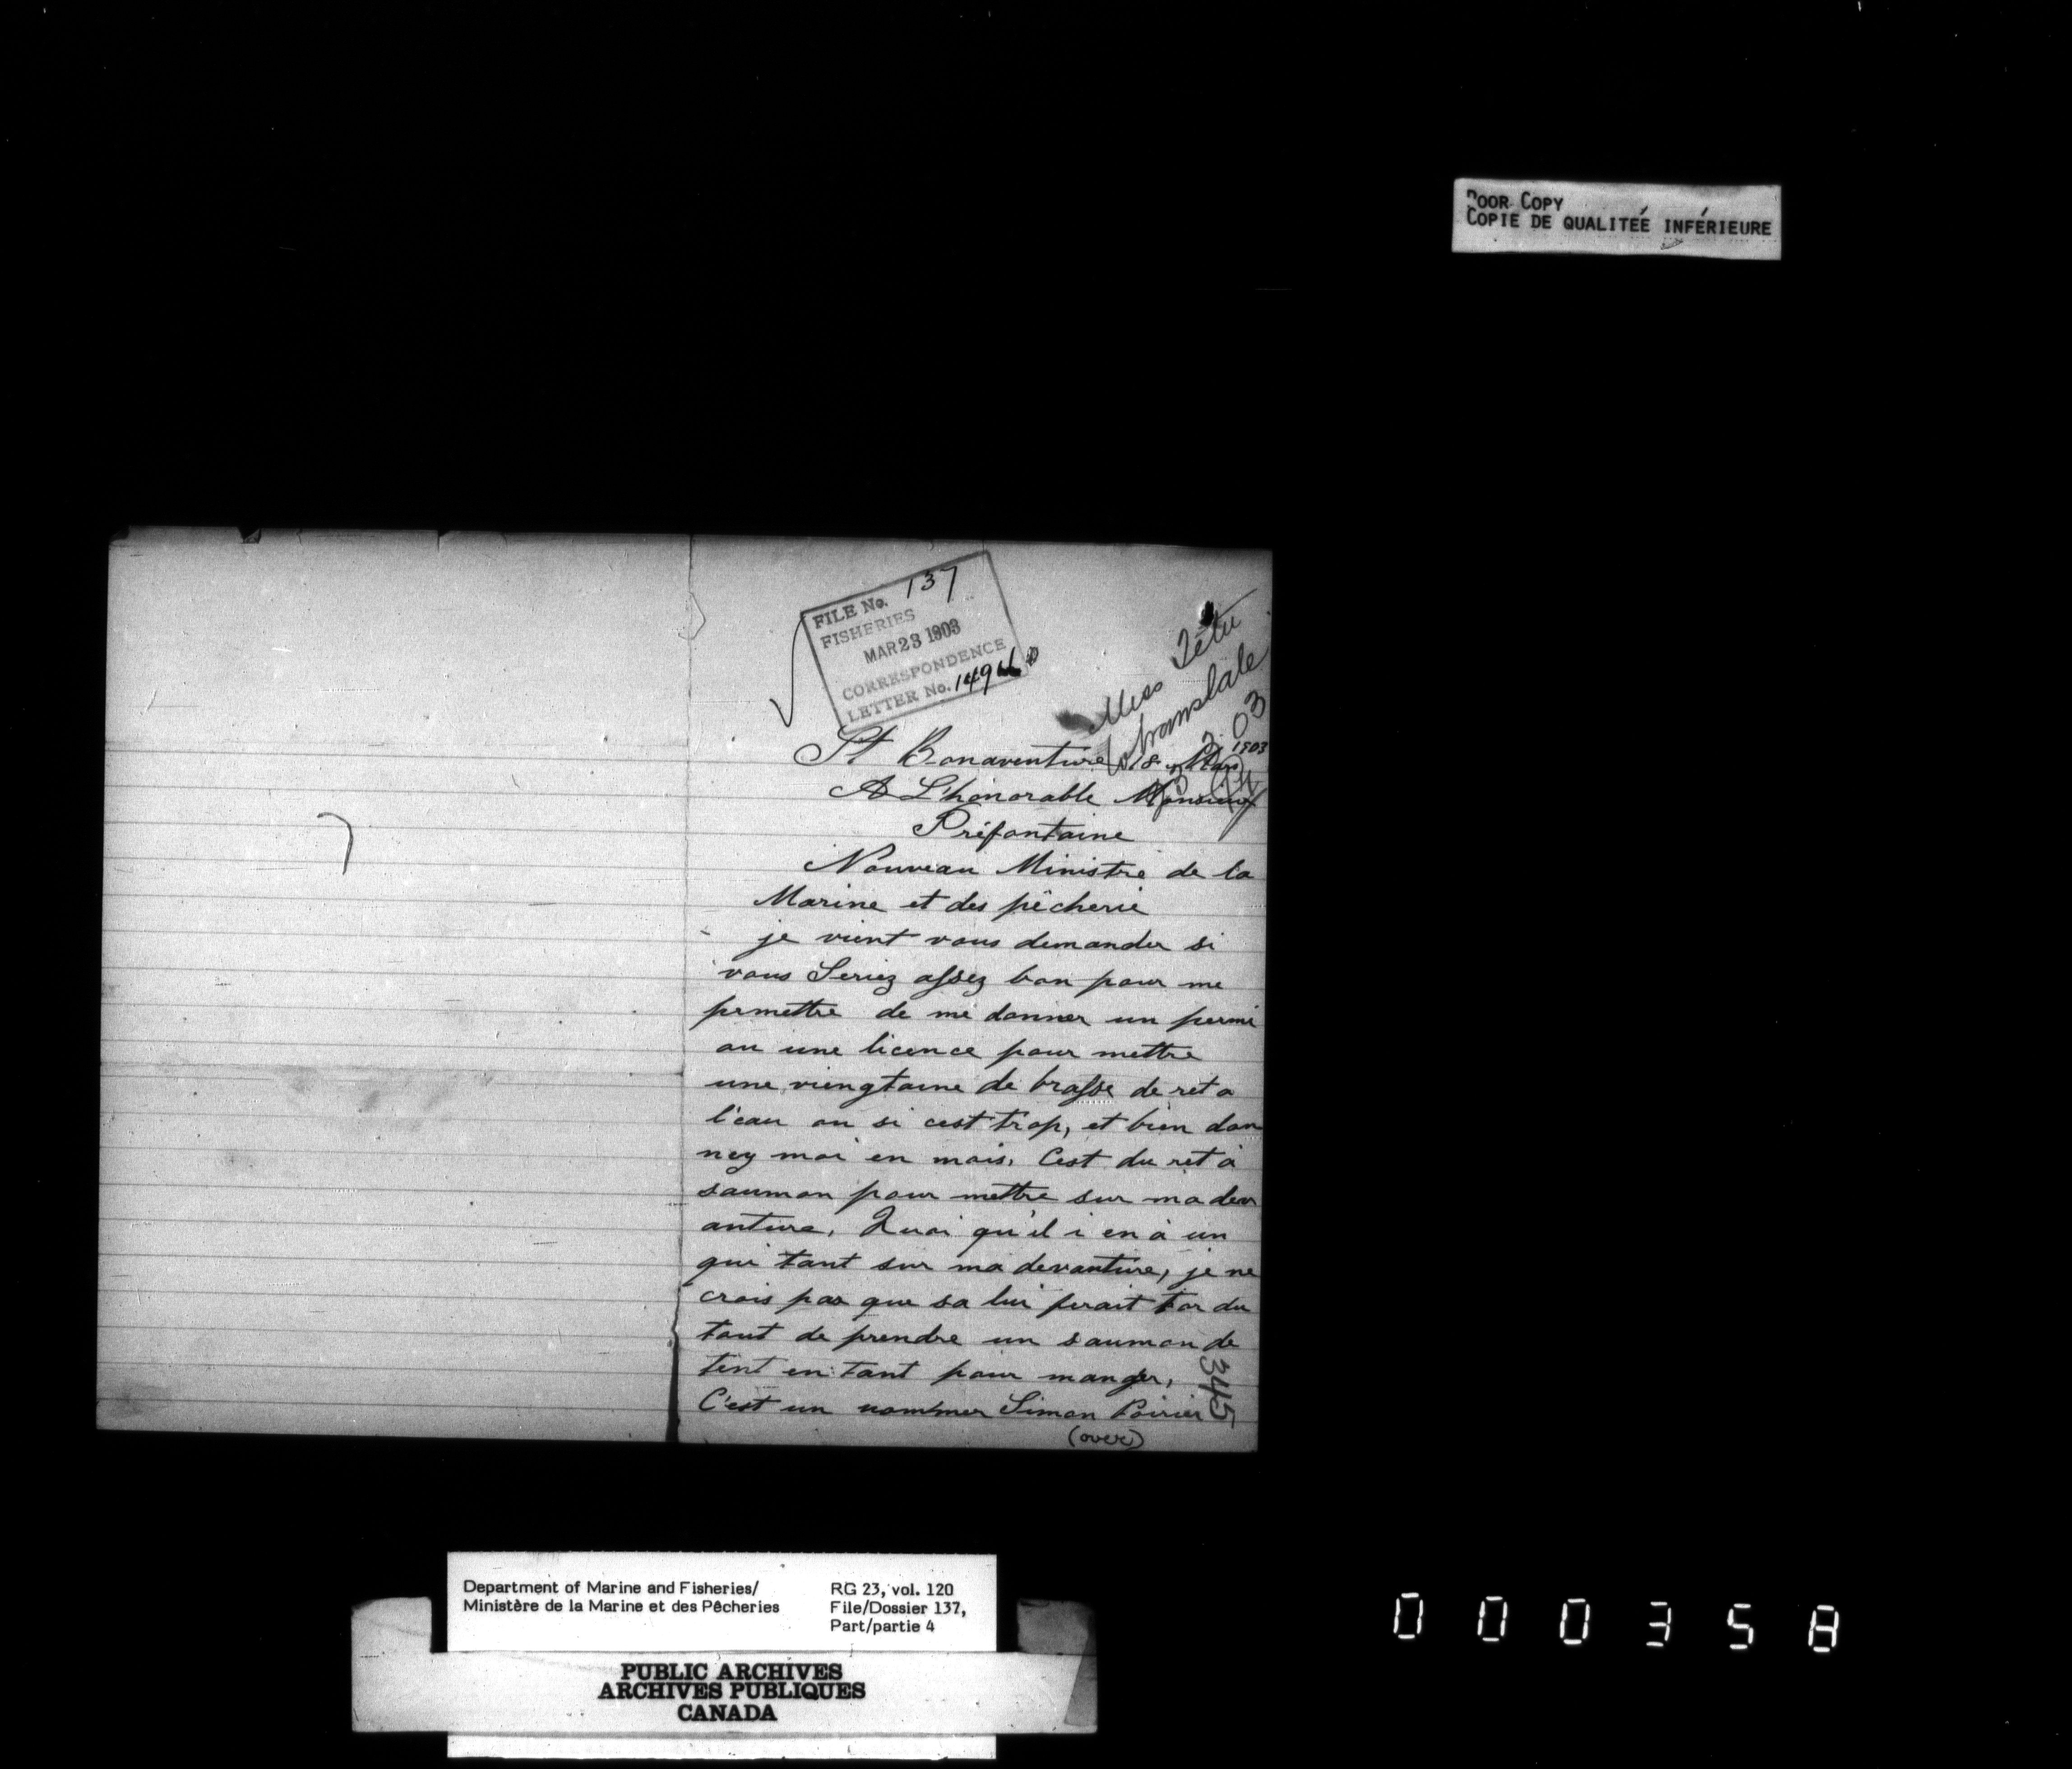 POOR COPY
COPIE DE QUALITEÉ INFÉRIEURE
FILE No. 137
FISHERIES
MAR 23 1903
CORRESPONDENCE
LETTER No. 149
Miss Têtu
to translate
3.03
St Bonaventure 18 Mars 1903
A L'honorable Monsieur
Préfontaine
Nouveau Ministre de la
Marine et des pêcherie
je vient vous demander si
vous Seriez assez bon pour me
prmettre de me donner un permi
ou une licence pour mettre
une viengtaine de brasse de ret a
l'eau ou si cest trop, et bien don
nez moi en mois. Cest du ret à
saumon pour mettre sur ma dev
anture. Quoi qu'il i en à un
qui tant sur ma devanture, je ne
crois pas que sa lui ferait tor du
tout de prendre un saumon de
tent en tant pour manger,
C'est un nommer Simon Poirier
(over)
345
Department of Marine and Fisheries/
Ministère de la Marine et des Pêcheries
RG 23, vol. 120
File/Dossier 137,
Part/partie 4
PUBLIC ARCHIVES
ARCHIVES PUBLIQUES
CANADA
000358